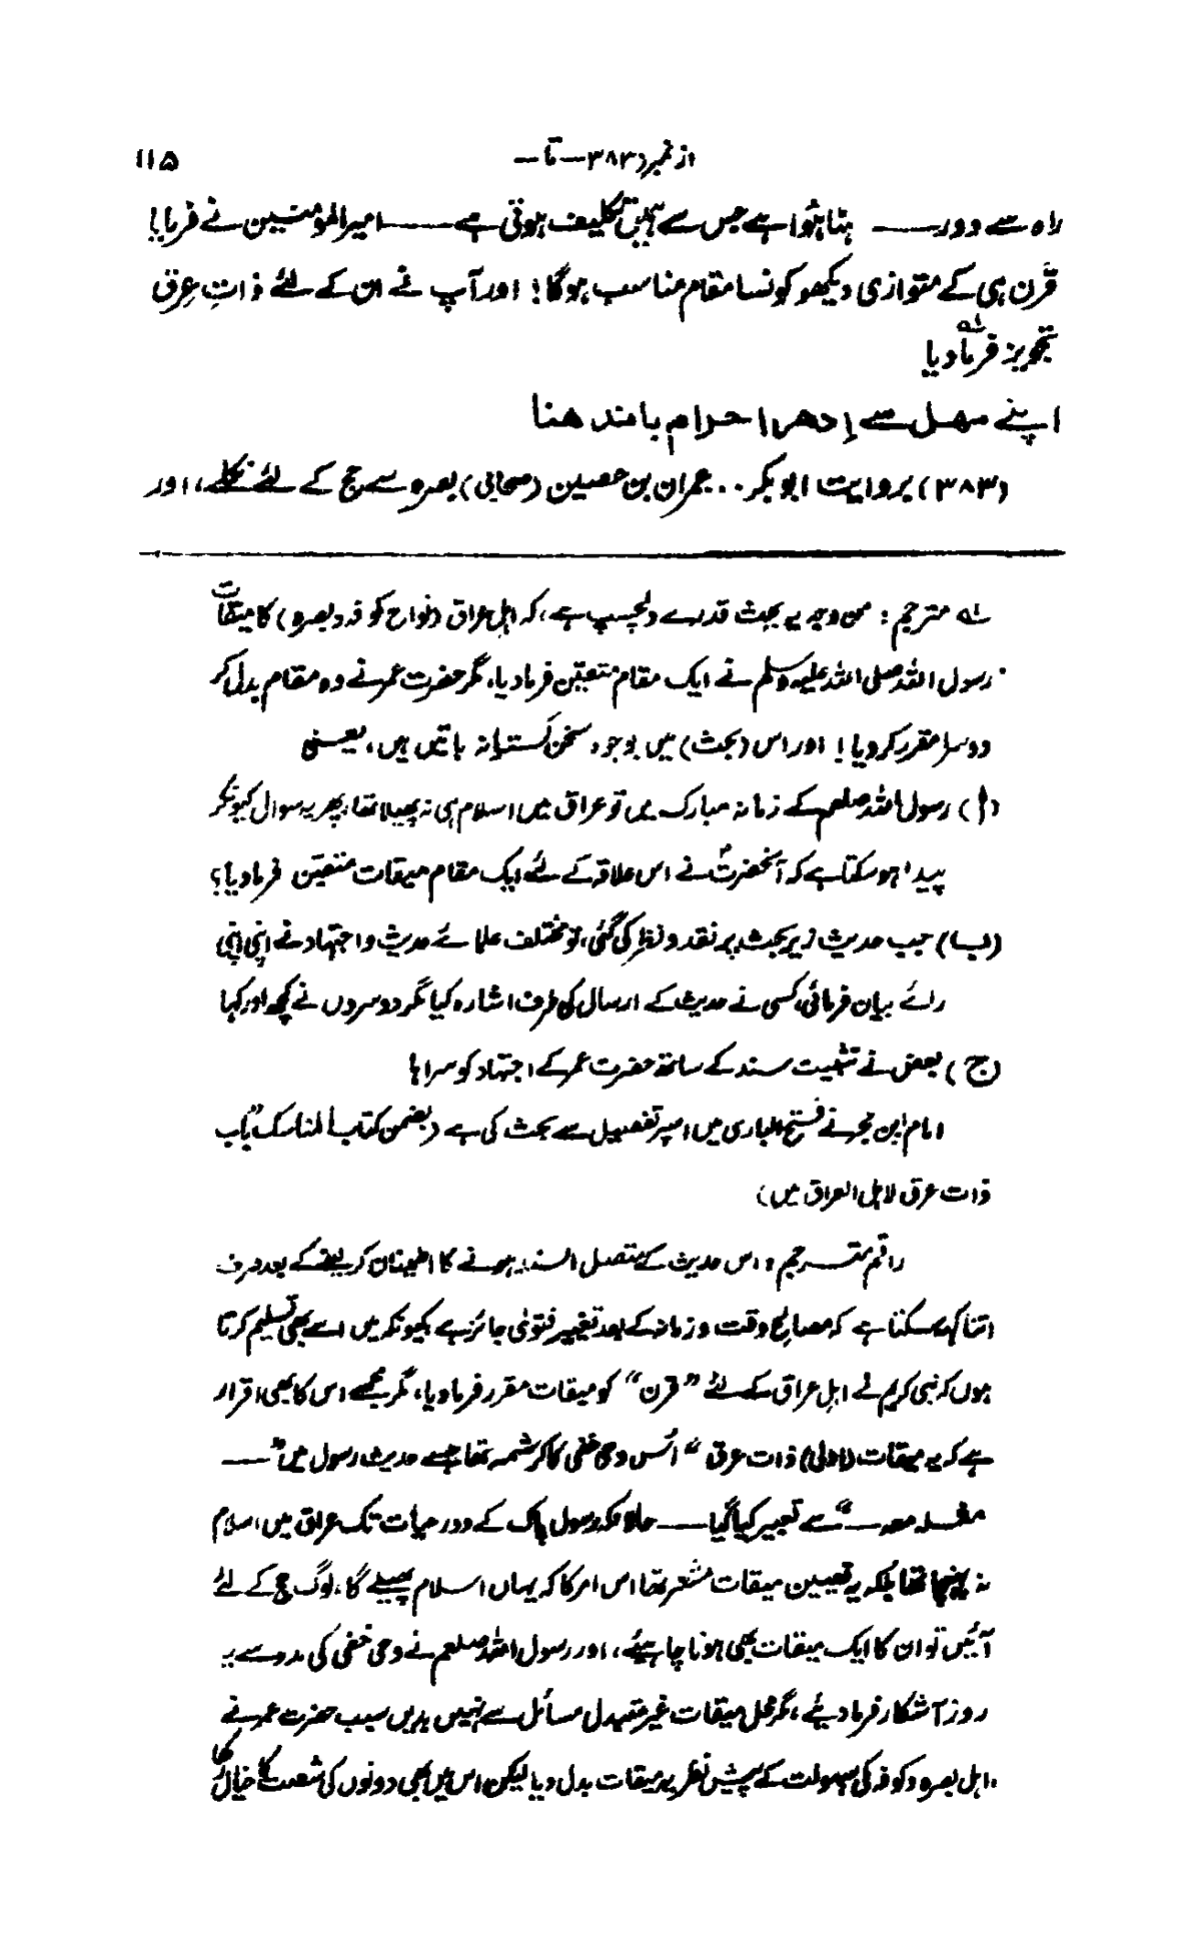 از نمبر (۳۸۳ — تا — ۱۱۵
راہ سے دور —— ہٹا ہُوا ہے جس سے ہمیں تکلیف ہوتی ہے —— امیرالمؤمنین نے فرمایا!
قرن ہی کے متوازی دیکھو کونسا مقام مناسب ہوگا! اور آپ نے ان کے لئے ذاتِ عِرق
تجویز فرما دیا لہ
اپنے مھل سے اِدھر احرام باندھنا
(۳۸۳) بروایت ابوبکر .. عمران بن حصین (صحابی) بصرہ سے حج کے لئے نکلے، اور
لہ مترجم : من وجہ یہ بحث قدرے دلچسپ ہے، کہ اہل عراق (نواح کوفہ و بصرہ) کا میقات
رسول اللہ صلی اللہ علیہ وسلم نے ایک مقام متعیّن فرما دیا، مگر حضرت عمر نے وہ مقام بدل کر
دوسرا مقرر کر دیا! اور اس (بحث) میں بوجوہ سخن گسترانہ باتیں ہیں، یعنی
(أ) رسول اللہ صلعم کے زمانہ مبارک میں تو عراق میں اسلام ہی نہ پھیلا تھا، پھر یہ سوال کیونکر
پیدا ہو سکتا ہے کہ آنحضرتؐ نے اس علاقہ کے لئے ایک مقام میقات متعیّن فرما دیا؟
(ب) جب حدیث زیر بحث پر نقد و نظر کی گئی، تو مختلف علمائے حدیث و اجتہاد نے اپنی اپنی
رائے بیان فرمائی، کسی نے حدیث کے ارسال کی طرف اشارہ کیا مگر دوسروں نے کچھ اور کہا
(ج) بعض نے تثبیت سند کے ساتھ حضرت عمر کے اجتہاد کو سراہا
امام ابن حجر نے فتح الباری میں اسپر تفصیل سے بحث کی ہے (بضمن کتاب المناسک "باب
ذات عرق لاہل العراق میں)
راقم مترجم : اس حدیث کے متصل السند ہونے کا اطمینان کر لینے کے بعد صرف
اتنا کہہ سکتا ہے کہ مصالح وقت و زمانہ کے بعد تغییر فتویٰ جائز ہے کیونکہ میں اسے بھی تسلیم کرتا
ہوں کہ نبی کریم نے اہلِ عراق کے لئے "قرن" کو میقات مقرر فرما دیا، مگر مجھے اس کا بھی اقرار
ہے کہ یہ میقات (اولیٰ) ذات عرق " اُس وحی خفی کا کرشمہ تھا جسے حدیث رسول میں" ——
مثلہ معہ —" سے تعبیر کیا گیا —— حالانکہ رسول پاک کے دور حیات تک عراق میں اسلام
نہ پہنچا تھا بلکہ یہ تعیین میقات مُشعر تھا اس امر کا کہ یہاں اسلام پھیلے گا، لوگ حج کے لئے
آئیں تو ان کا ایک میقات بھی ہونا چاہیئے، اور رسول اللہ صلعم نے وحی خفی کی مدد سے یہ
روز آشکار فرما دیئے، مگر محل میقات غیر متبدل مسائل سے نہیں بدیں سبب حضرت عمر نے
اہل بصرہ و کوفہ کی سہولت کے پیش نظر یہ میقات بدل دیا لیکن اس میں بھی دونوں کی سمت کا خیال رکھا